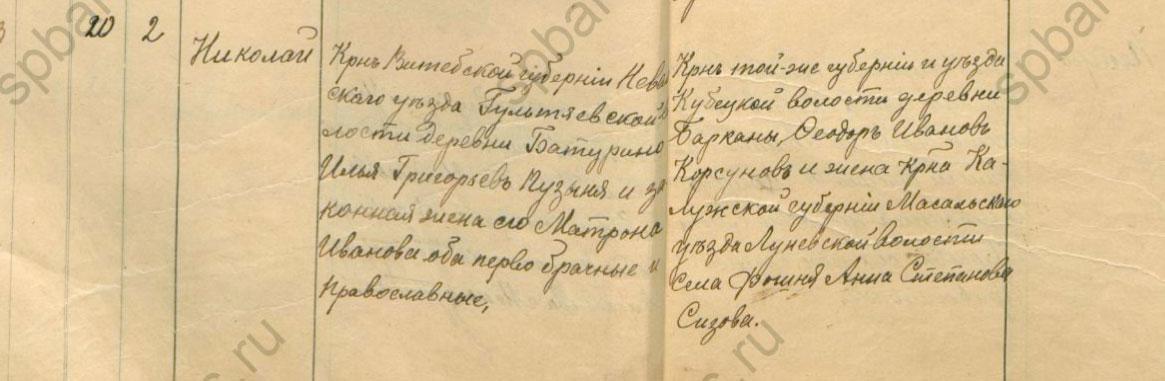 20 2
Николай
Крнъ Витебской губерніи Неве
скаго уѣзда Гультяевской
лости деревни Батурино
Илья Григорьевъ Пузыня и за
конная жена его Матрона
Иванова оба перво брачные и
православные,
Крнъ той-же губерніи и уѣзда
Кубецкой волости деревни
Барканы, Ѳеодоръ Ивановъ
Корсуновъ и жена крна Ка-
лужской губерніи Масальскаго
уѣзда Луневской волости
села Фошня Анна Степанова
Сизова.